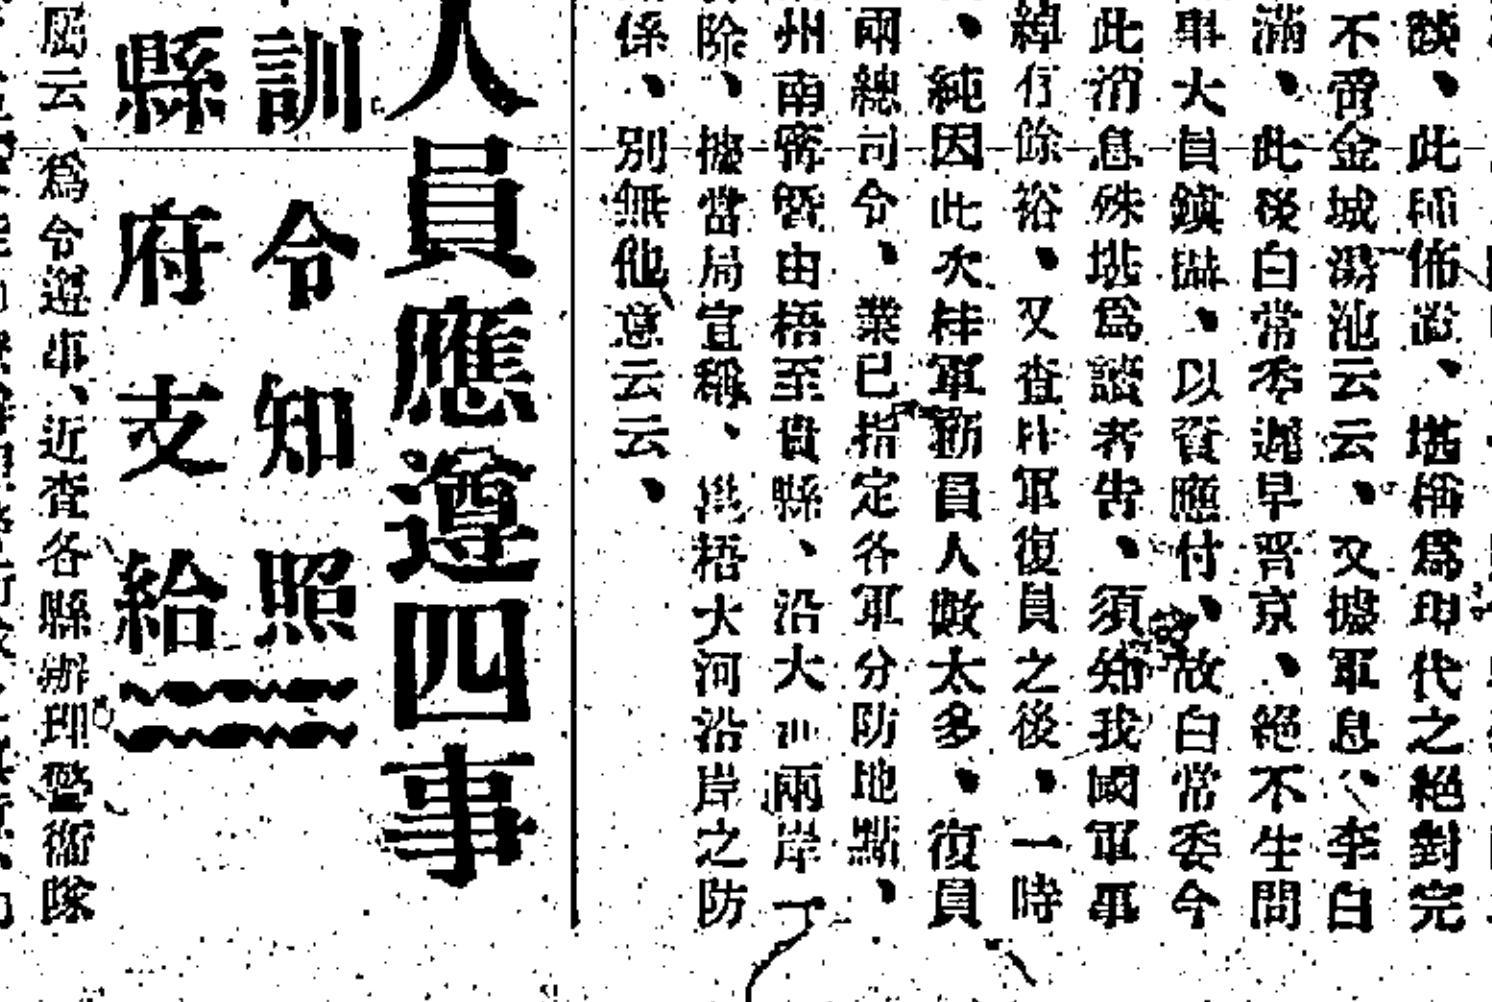 談、此種佈置、堪稱爲現代之絕對完
不啻金城湯池云云、又據軍息、李白
滿、此後白常委遲早晋京、絕不生問
事大員鎮攝、以資應付、故白常委今
此消息殊堪爲讀者告、須知我國軍事
綽有餘裕、又查桂軍復員之後、一時
、純因此次桂軍動員人數太多、復員
兩總司令、業已指定各軍分防地點、
州南寧暨由梧至貴縣、沿大河兩岸一
除、據當局宣稱、邕梧大河沿岸之防
係、別無他意云云、
人員應遵四事
訓令知照
縣府支給
屬云、爲令遵事、近查各縣辦理警衞隊